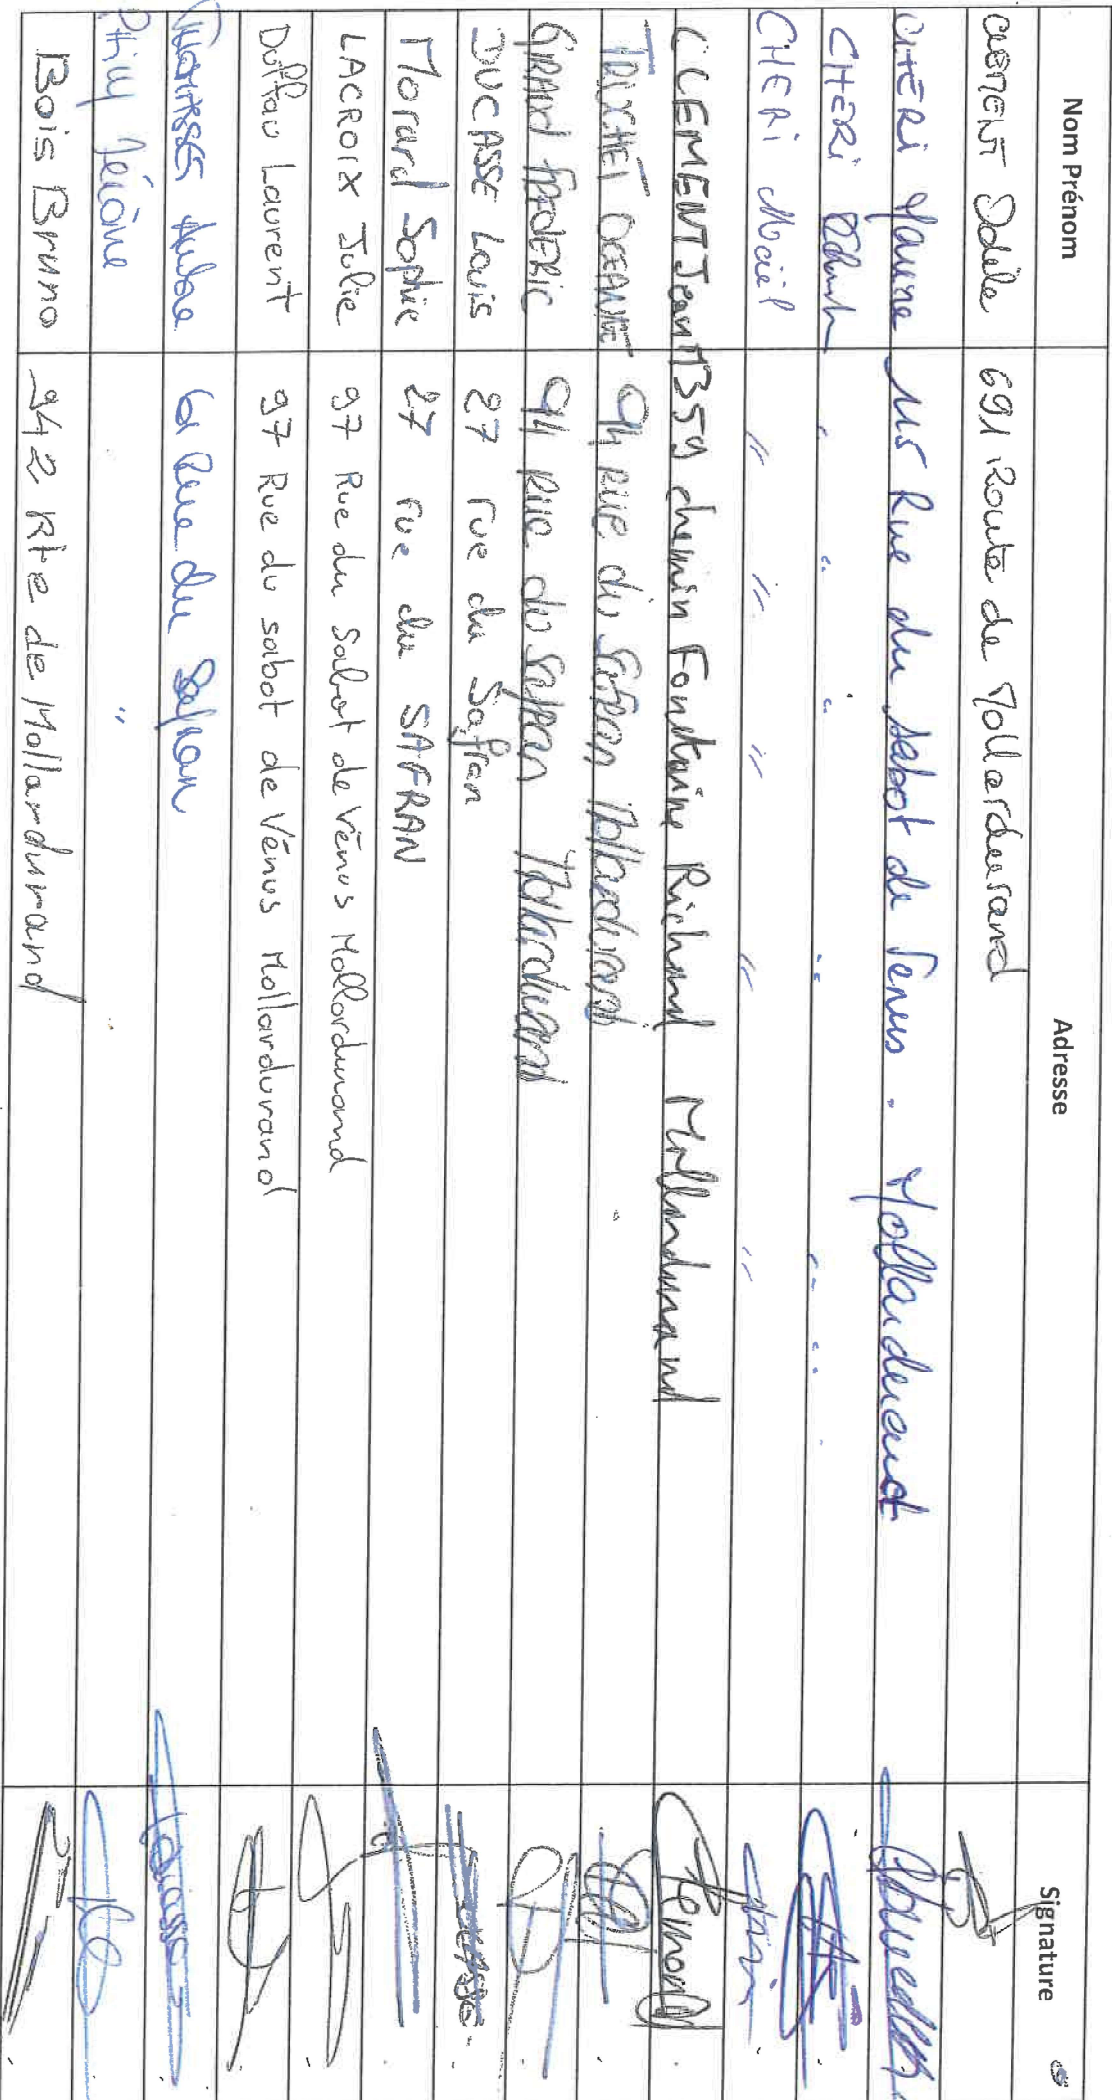 Nom Prénom Adresse Signature
CLEMENT Odile 691 Route de Mollarduvand
CHERI Maurine 115 Rue du Sabot de Venus - Mollarduvand
CHERI " " " " " "
CHERI Maciel " " " " "
CLEMENT Jean M 359 chemin Fontaine Richard Mollarduvand
TRUCHET OCEANNE 94 rue du Safran Mollarduvand
GIRAUD FREDERIC 94 rue du Safran Mollarduvand
DUCASSE Louis 27 rue du Safran DUCASSE
Morard Sophie 27 rue du SAFRAN
LACROIX Julie 97 Rue du Sabot de Vénus Mollarduvand
Duffau Laurent 97 Rue du sabot de Vénus Mollarduvand
61 Rue du Safran
Jérôme "
Bois Bruno 942 Rte de Mollarduvand